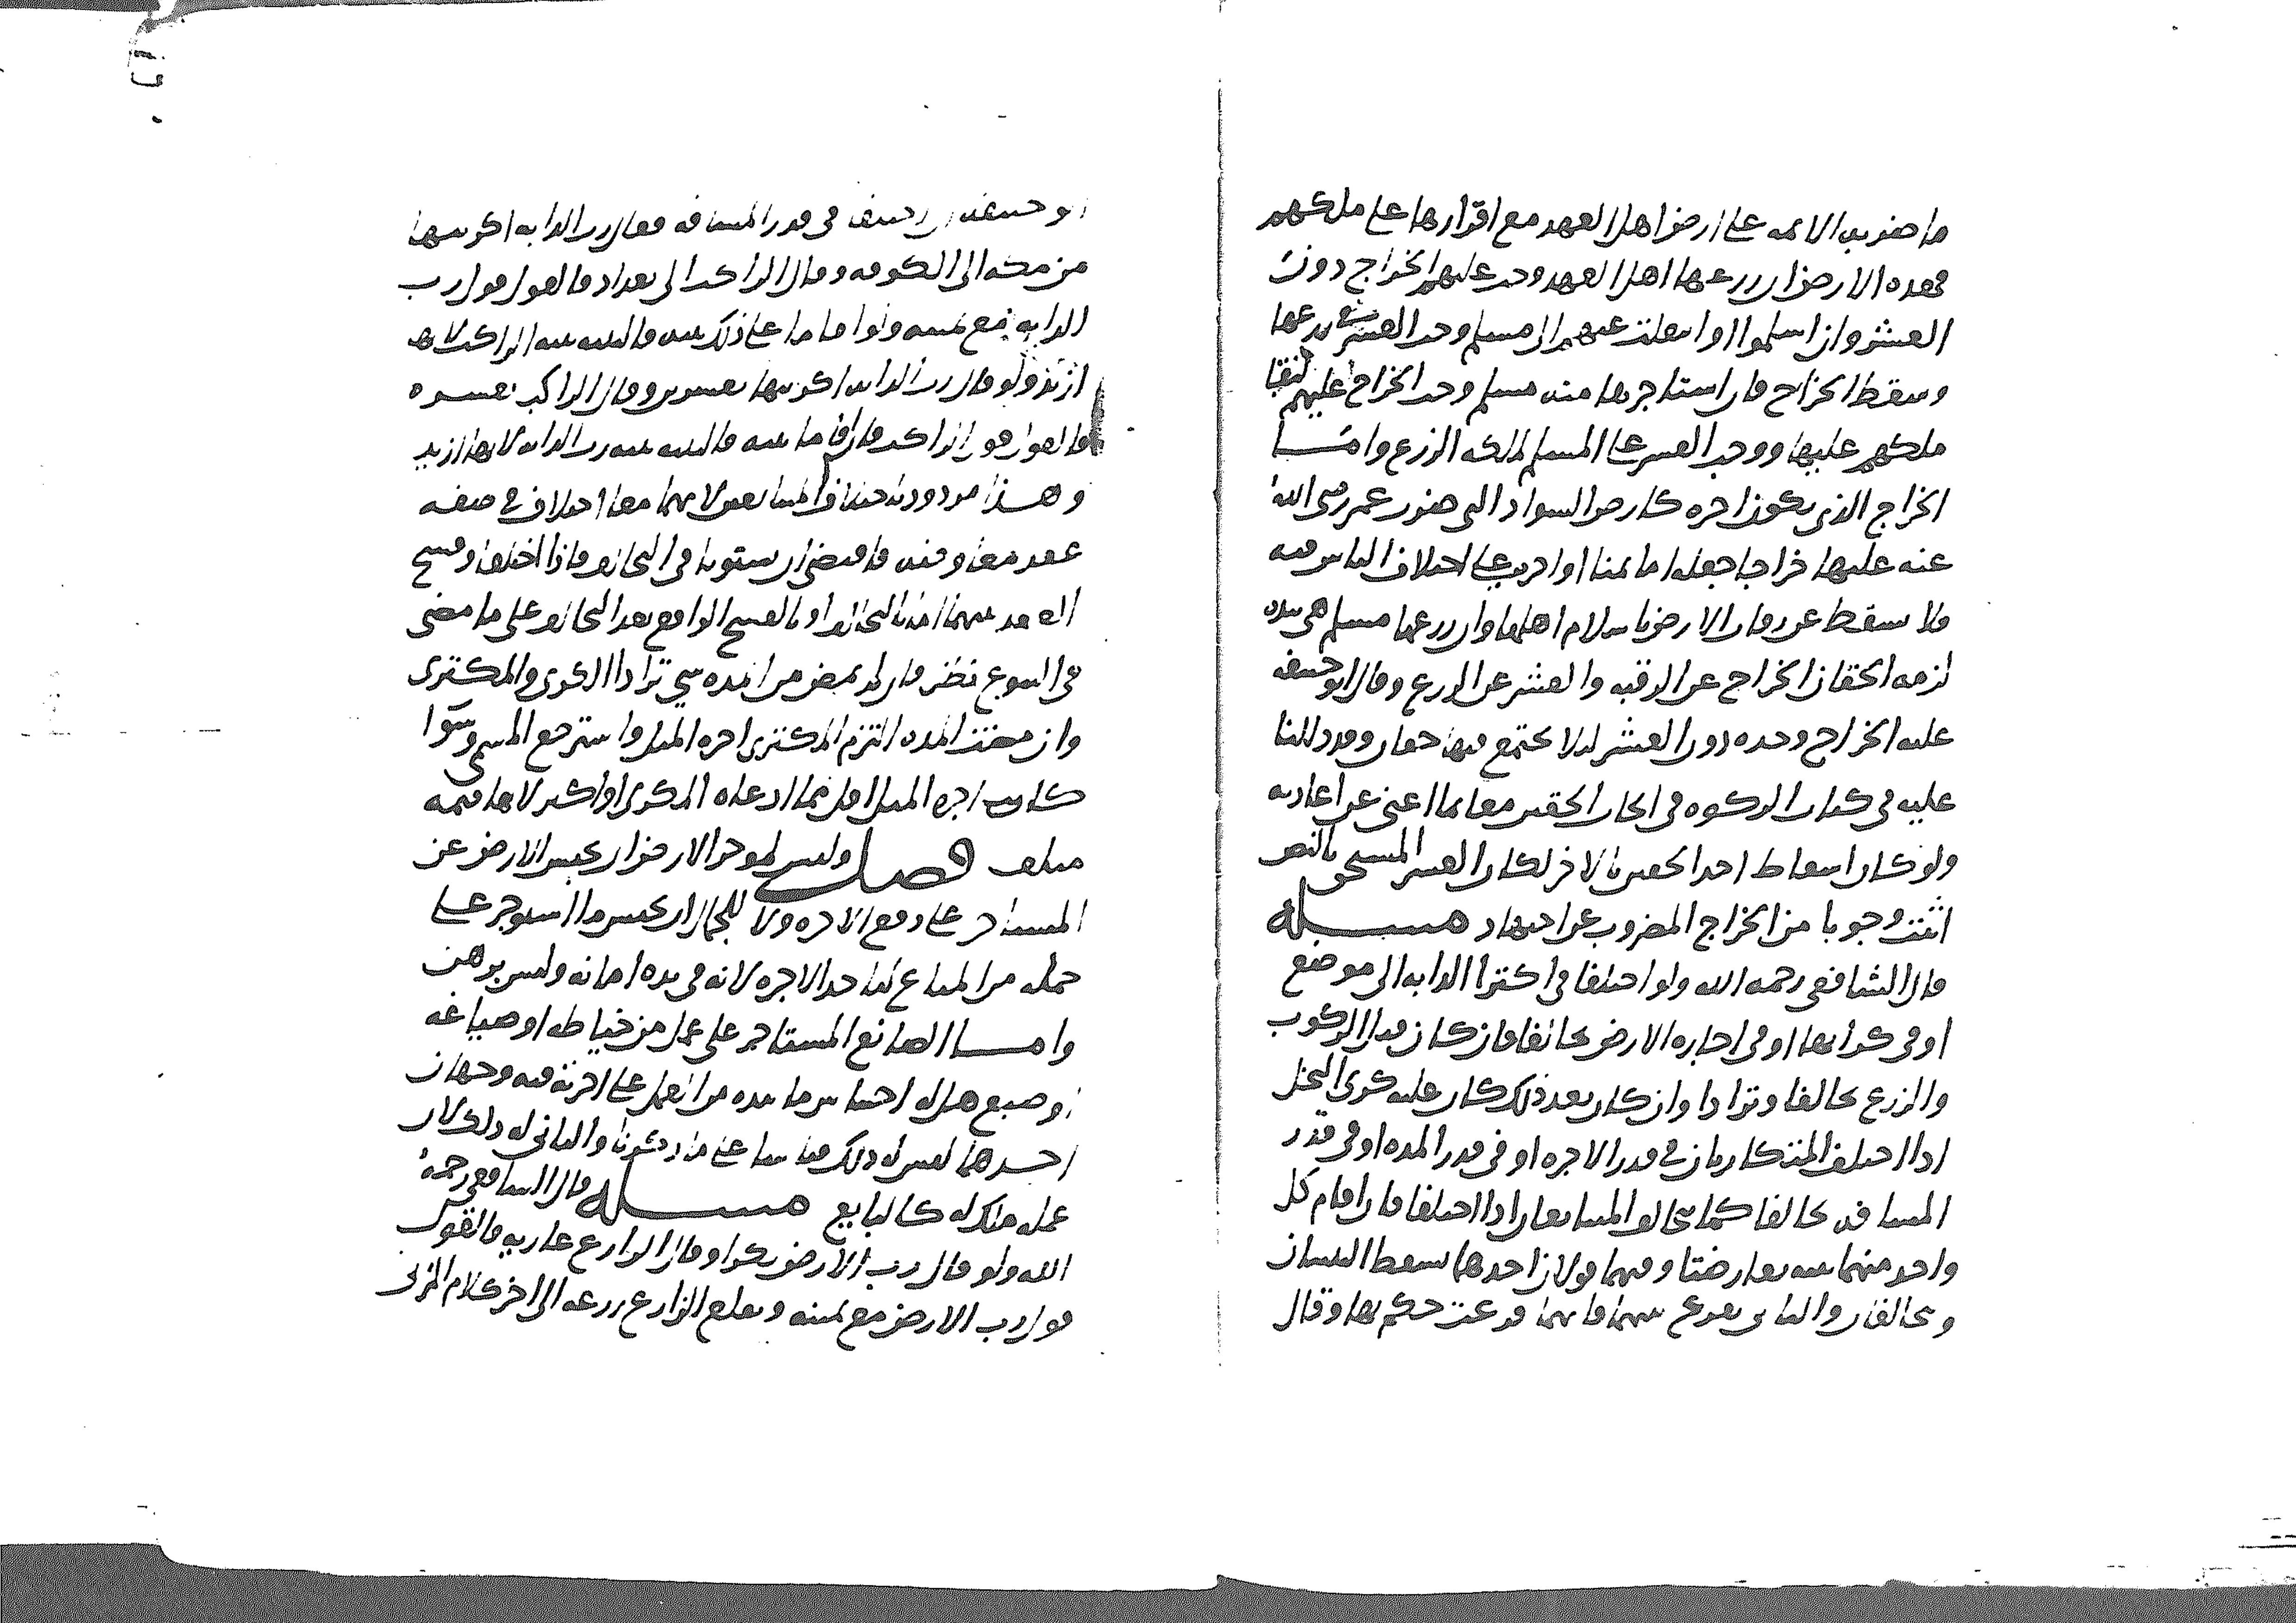 ما ضربه الائمه على ارض اهل العهد مع اقرارها على ملكهم
فهذه الارض ان زرعها اهل العهد وجب عليهم الخراج دون
العشر وان اسلموا او انتقلت عنهم الى مسلم وجب العشر في زرعها
وسقط الخراج فان استاجرها منه مسلم وجب الخراج عليهم لبقا
ملكهم عليها ووجب العشر على المسلم لملكه الزرع وامـــا
الخراج الذي يكون اجره كارض السواد التي ضرب عمر رضي الله
عنه عليها خراجا جعله اما ثمنا او اجره على اختلاف الناس فيه
فلا يسقط عن رقاب الارض باسلام اهلها وان زرعها مسلم
لزمه الحقان الخراج عن الرقبه والعشر عن الزرع وقال ابو حنيفه
عليه الخراج وحده دون العشر لئلا يجتمع فيها حقان وقد دللنا
عليه في كتاب الزكوه في ايجاب الحقين معا بما اغنى عن اعادته
ولو كان اسقاط احد الحقين بالاخر لكان العشر المستحق بالنص
اثبت وجوبا من الخراج المضروب عن اجتهاد مســـله
قال الشافعي رحمه الله ولو اختلفا في اكترا الدابه الى موضع
او في كرائها او في اجاره الارض تحالفا فان كان قبل الركوب
والزرع تحالفا وترادا وان كان بعد ذلك كان عليه كرى المثل
اذا اختلف المتكاريان في قدر الاجره او في قدر المده او في قدر
المسافه تحالفا كما يتحالف المتبايعان اذا اختلفا فان اقام كل
واحد منهما بينه تعارضتا وفيهما قولان احدهما تسقط البينتان
ويتحالفان والثاني يقرع بينهما فايهما قرعت حكم بها وقال
ابو حنيفه ان اختلفا في قدر المسافه فقال رب الدابه اكريتها
من مكه الى الكوفه وقال الراكب الى بغداد فالقول قول رب
الدابه مع يمينه ولو اقاما على ذلك بينه فالبينه بينه الراكب لانها
ازيد ولو قال رب الدابه اكريتها بعشرين وقال الراكب بعشره
فالقول قول الراكب فان اقاما بينه فالبينه بينه رب الدابه لانها ازيد
وهـــذا مردود باختلاف المتبايعين لانهما معا اختلاف في صفه
عقد معاوضه فاقتضى ان يستويا في التحالف فاذا اختلفا وفسخ
العقد بينهما اما بالتحالف او بالفسخ الواقع بعد التحالف على ما مضى
في البيوع نظر فان لم يمض من المده شي ترادا الكرى والمكترى
وان مضت المده التزم المكتري اجره المثل واسترجع المسمى وسوا
كانت اجره المثل اقل مما ادعاه المكري او اكثر لانها قيمه
متلف فصـــل وليس لموجر الارض ان يحبس الارض عن
المستاجر على دفع الاجره ولا للجمال ان يحبس ما استوجر على
حمله من المتاع لياخذ الاجره لانه في يده امانه وليس برهن
وامـــا الصانع المستاجر على عمل من خياطه او صياغه
او صبغ هل له احتباس ما بيده من العمل على اجرته فيه وجهان
احـــدهما ليس له ذلك قياسا على ما ذكرنا والثاني له ذلك لان
عمله ملك له كالبايع مســـله قال الشافعي رحمه
الله ولو قال رب الارض بكرا وقال الزارع عاريه فالقول
قول رب الارض مع يمينه ويقلع الزارع زرعه الى اخر كلام المزني